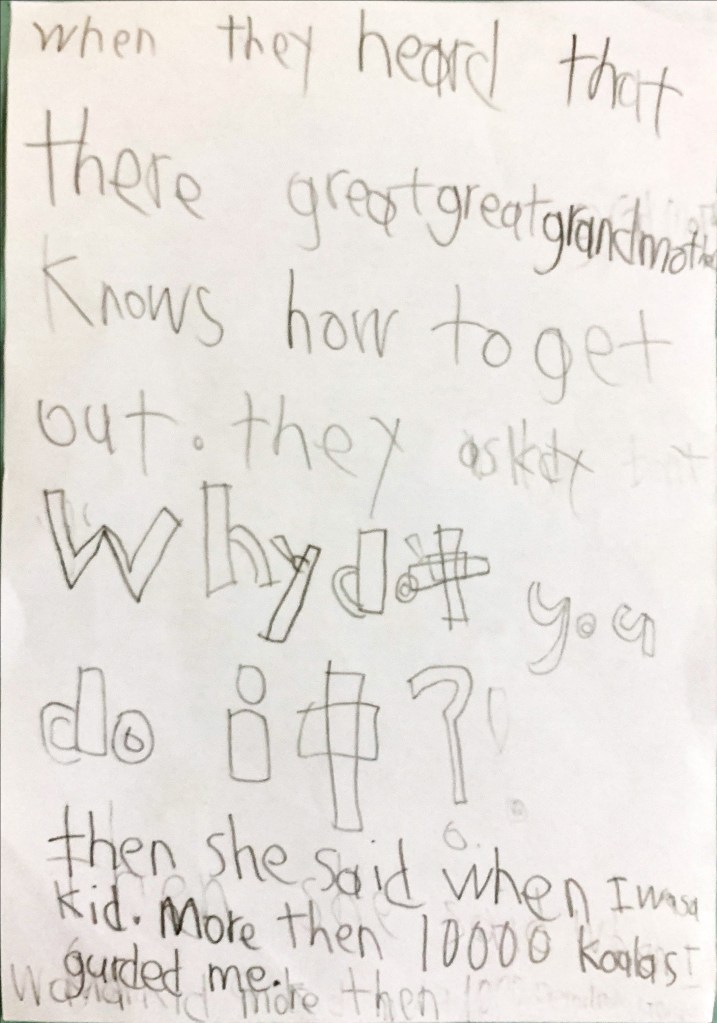 when they heard that
there greatgreatgrandmothe
Knows how to get
out. they
Why do't you
do it?
then she said when I was a
kid. More then 10000 koalas
gurded me.
more then